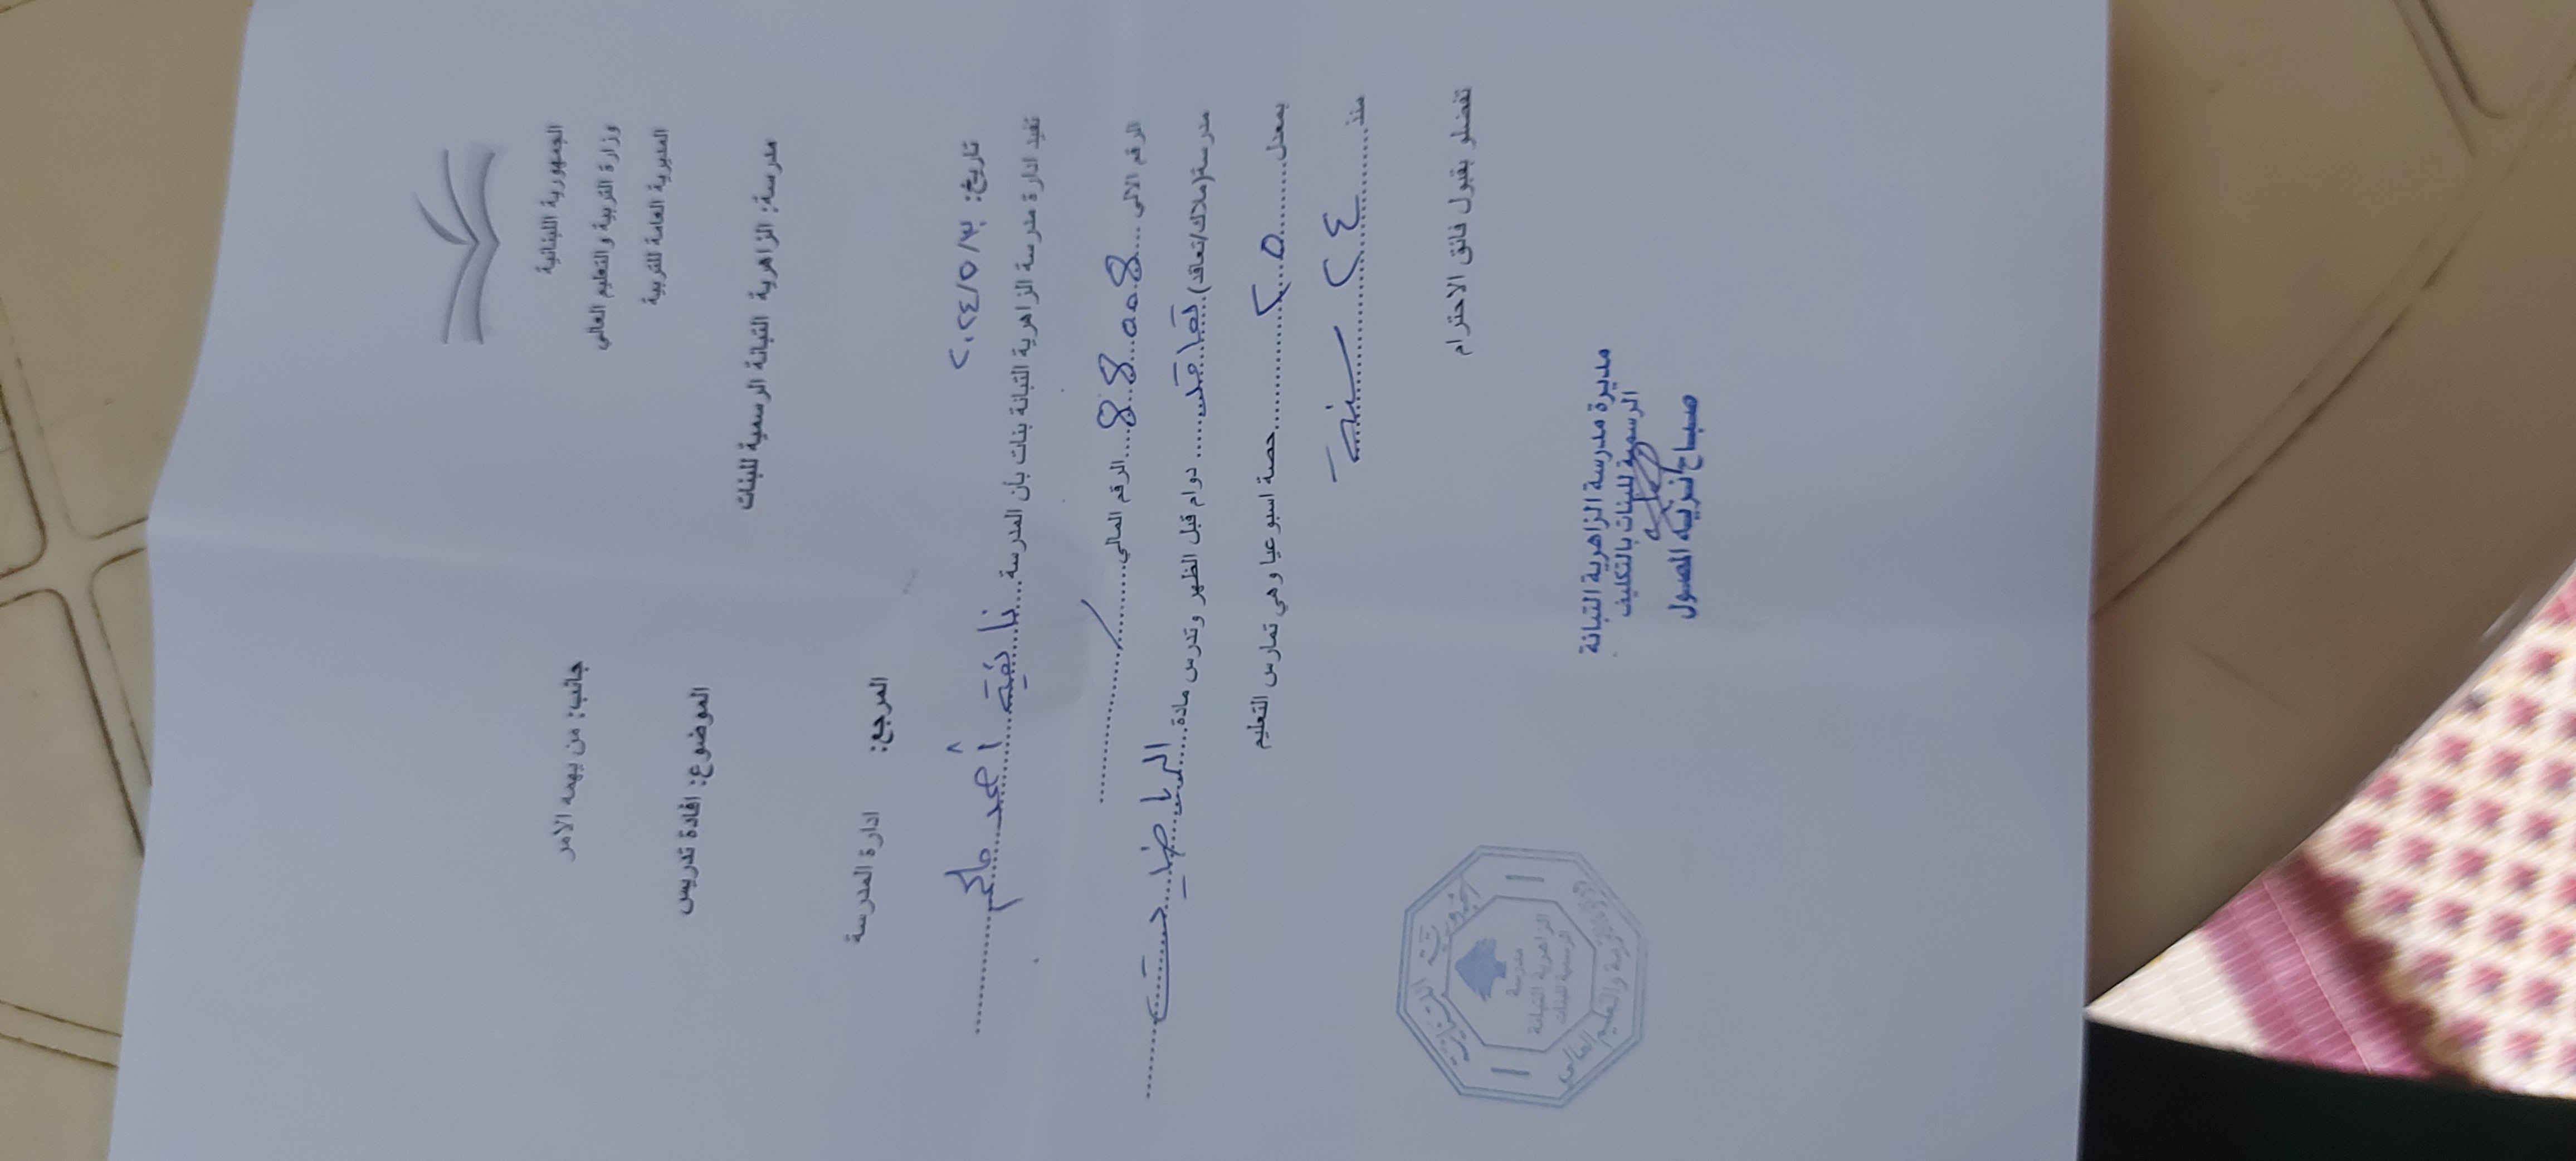 الجمهورية اللبنانية
وزارة التربية والتعليم العالي
المديرية العامة للتربية
مدرسة: الزاهرية التبانة الرسمية للبنات
جانب: من يهمه الامر
الموضوع: افادة تدريس
المرجع: ادارة المدرسة
تاريخ: ٢٠٢٤/٥/٣
تفيد ادارة مدرسة الزاهرية التبانة بنات بأن المدرسة ... نافية أحمد حاكم
الرقم الالي ... 88008 ... الرقم المالي ... /
مدرسة(ملاك/تعاقد) تعاقد ... دوام قبل الظهر وتدرس مادة ... الرياضيات
بمعدل ... ٢٥ ... حصة اسبوعيا وهي تمارس التعليم
منذ ... ٢٤ سنة
تفضلو بقبول فائق الاحترام
مديرة مدرسة الزاهرية التبانة
الرسمية للبنات بالتكليف
صباح نزيه المصول
الجمهورية اللبنانية
مدرسة
الزاهرية التبانة
الرسمية للبنات
وزارة التربية والتعليم العالي